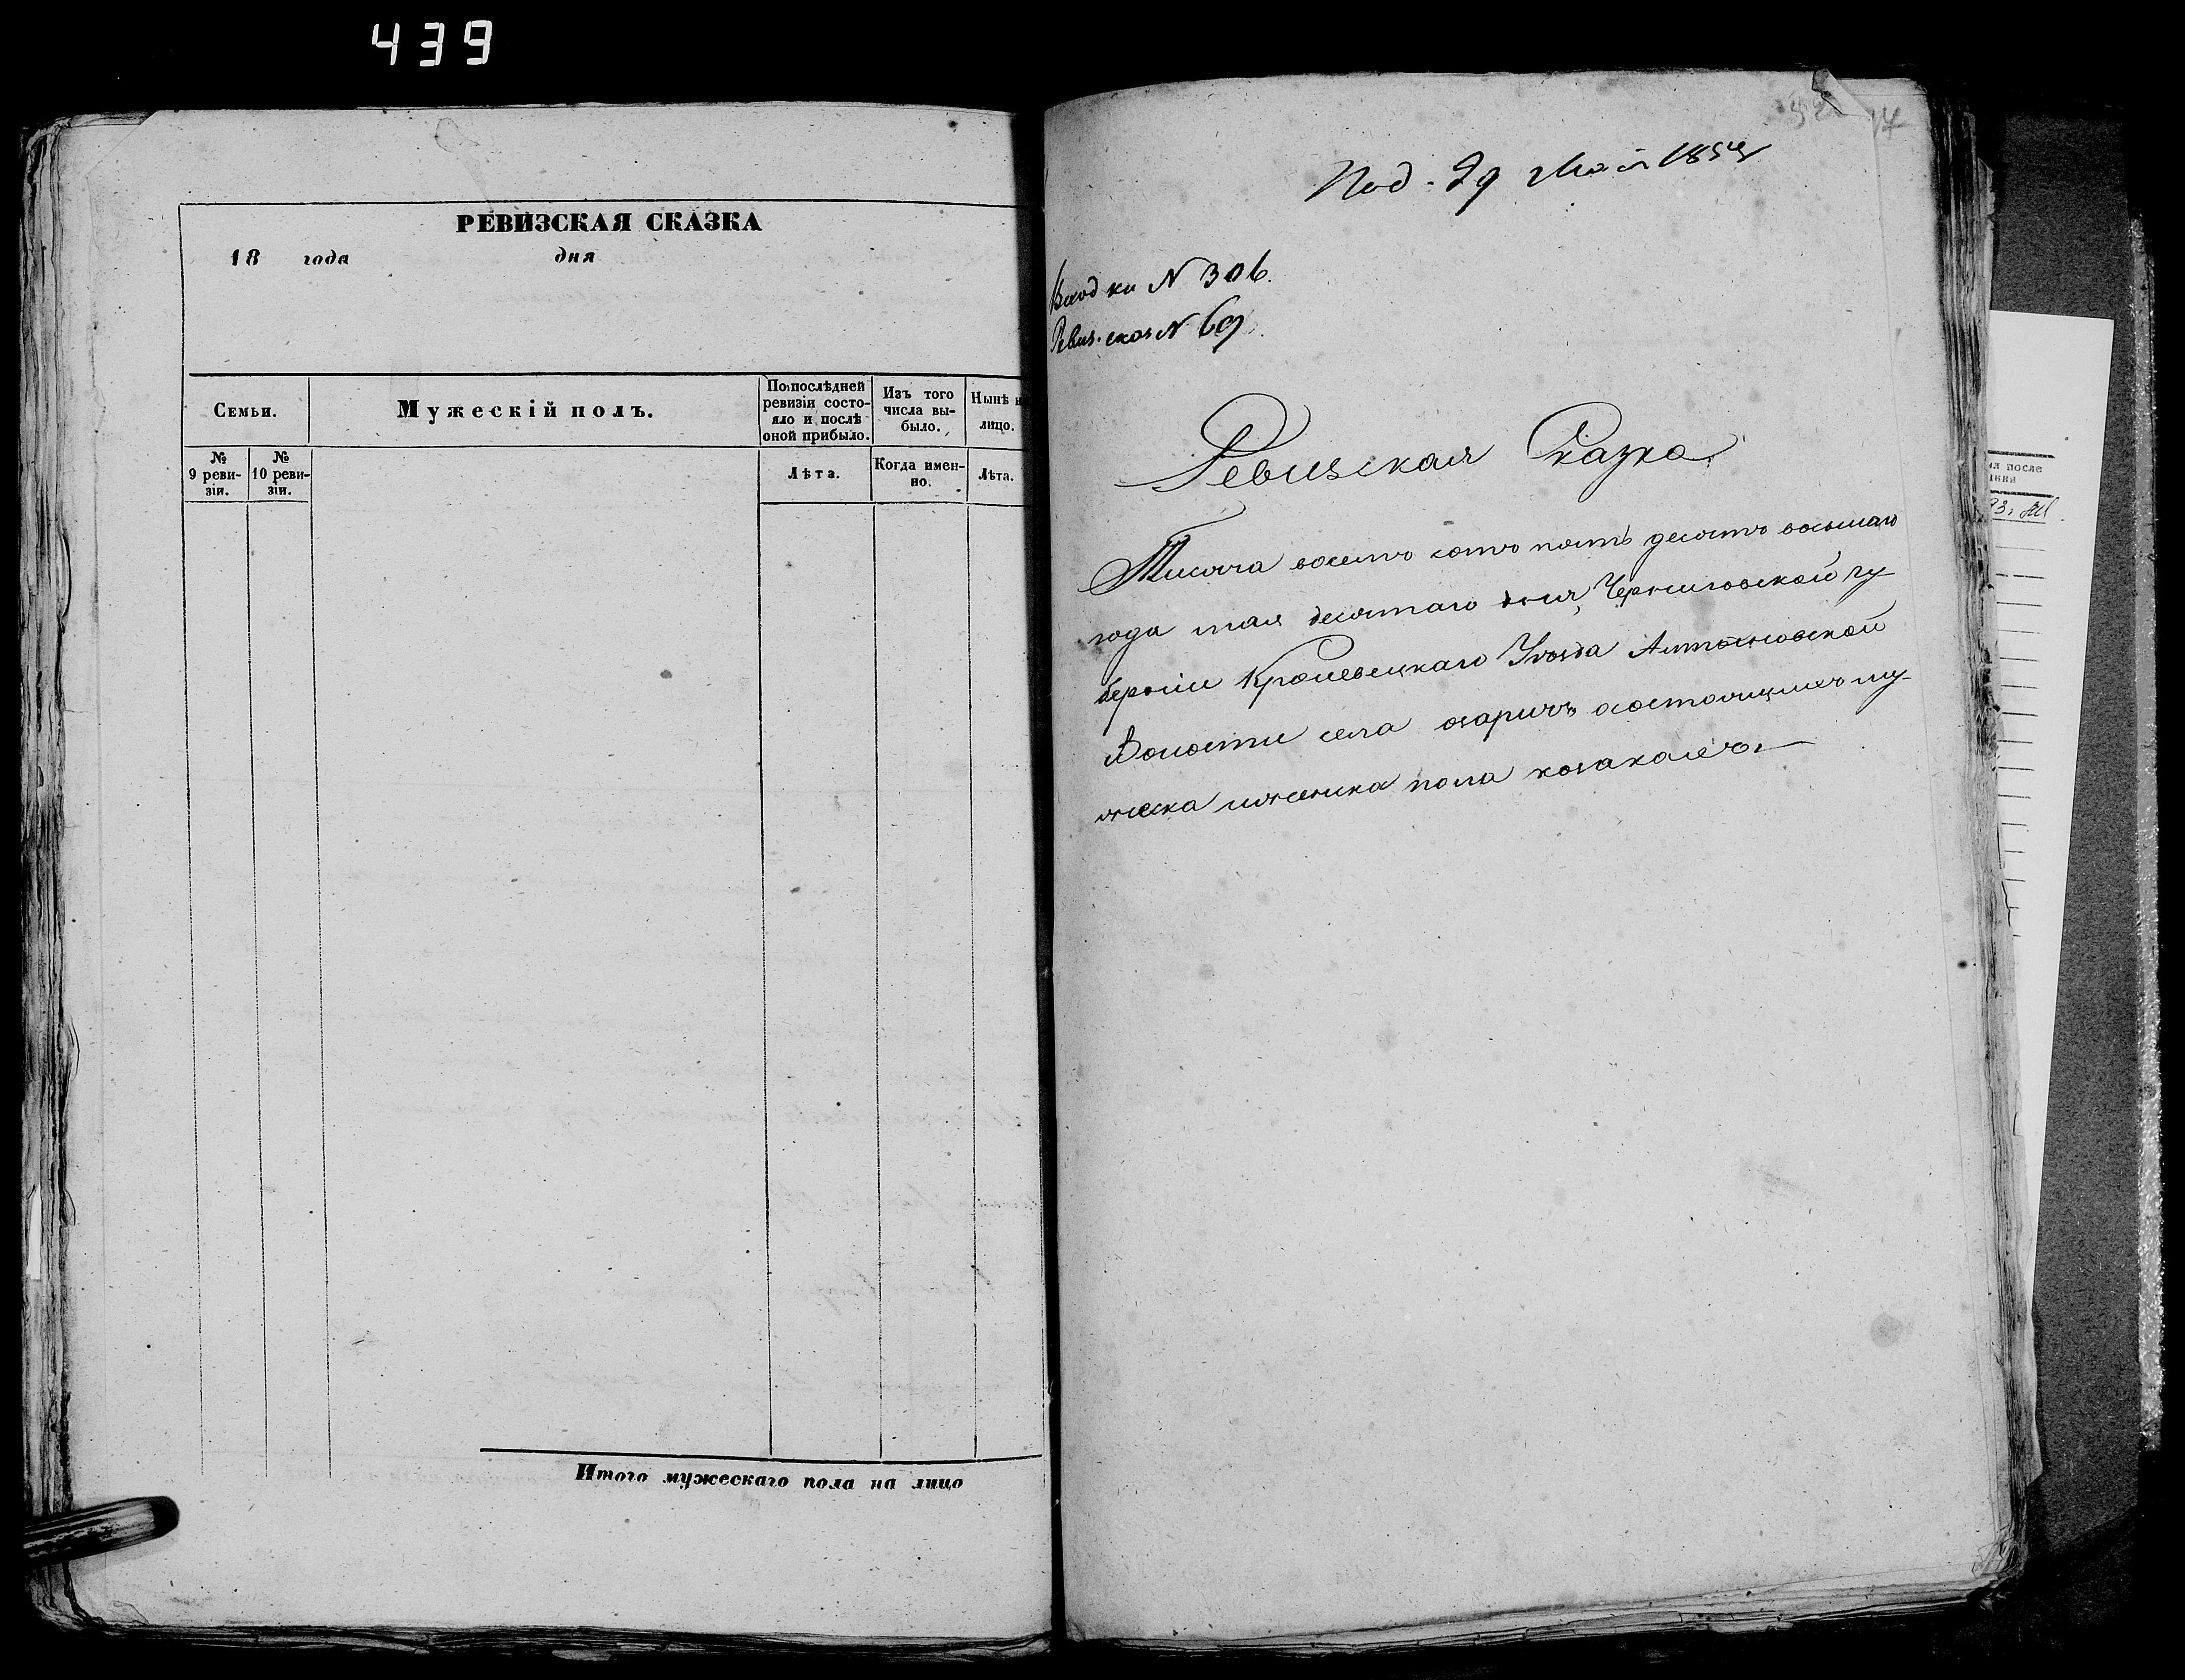 439
РЕВИЗСКАЯ СКАЗКА
18 года дня
Семьи.
Мужескій полъ.
По послѣдней ревизіи состояло и послѣ оной прибыло.
Изъ того числа выбыло.
Нынѣ н
лицо.
№ 9 ревизіи.
№ 10 ревизіи.
Лѣта.
Когда именно.
Лѣта.
Итого мужескаго пола на лицо
Под. 29 Мая 1858
Вход кн N 306.
Ревиз. сказ N 69.
Ревизская Сказка
Тисяча восемъ сотъ пять десятъ восьмаго
года мая десятаго дня, Черниговской гу
берніи Кролевецкаго Уѣзда Алтыновской
Волости села озаричъ состоящимъ му-
жеска и женска пола козакамъ.